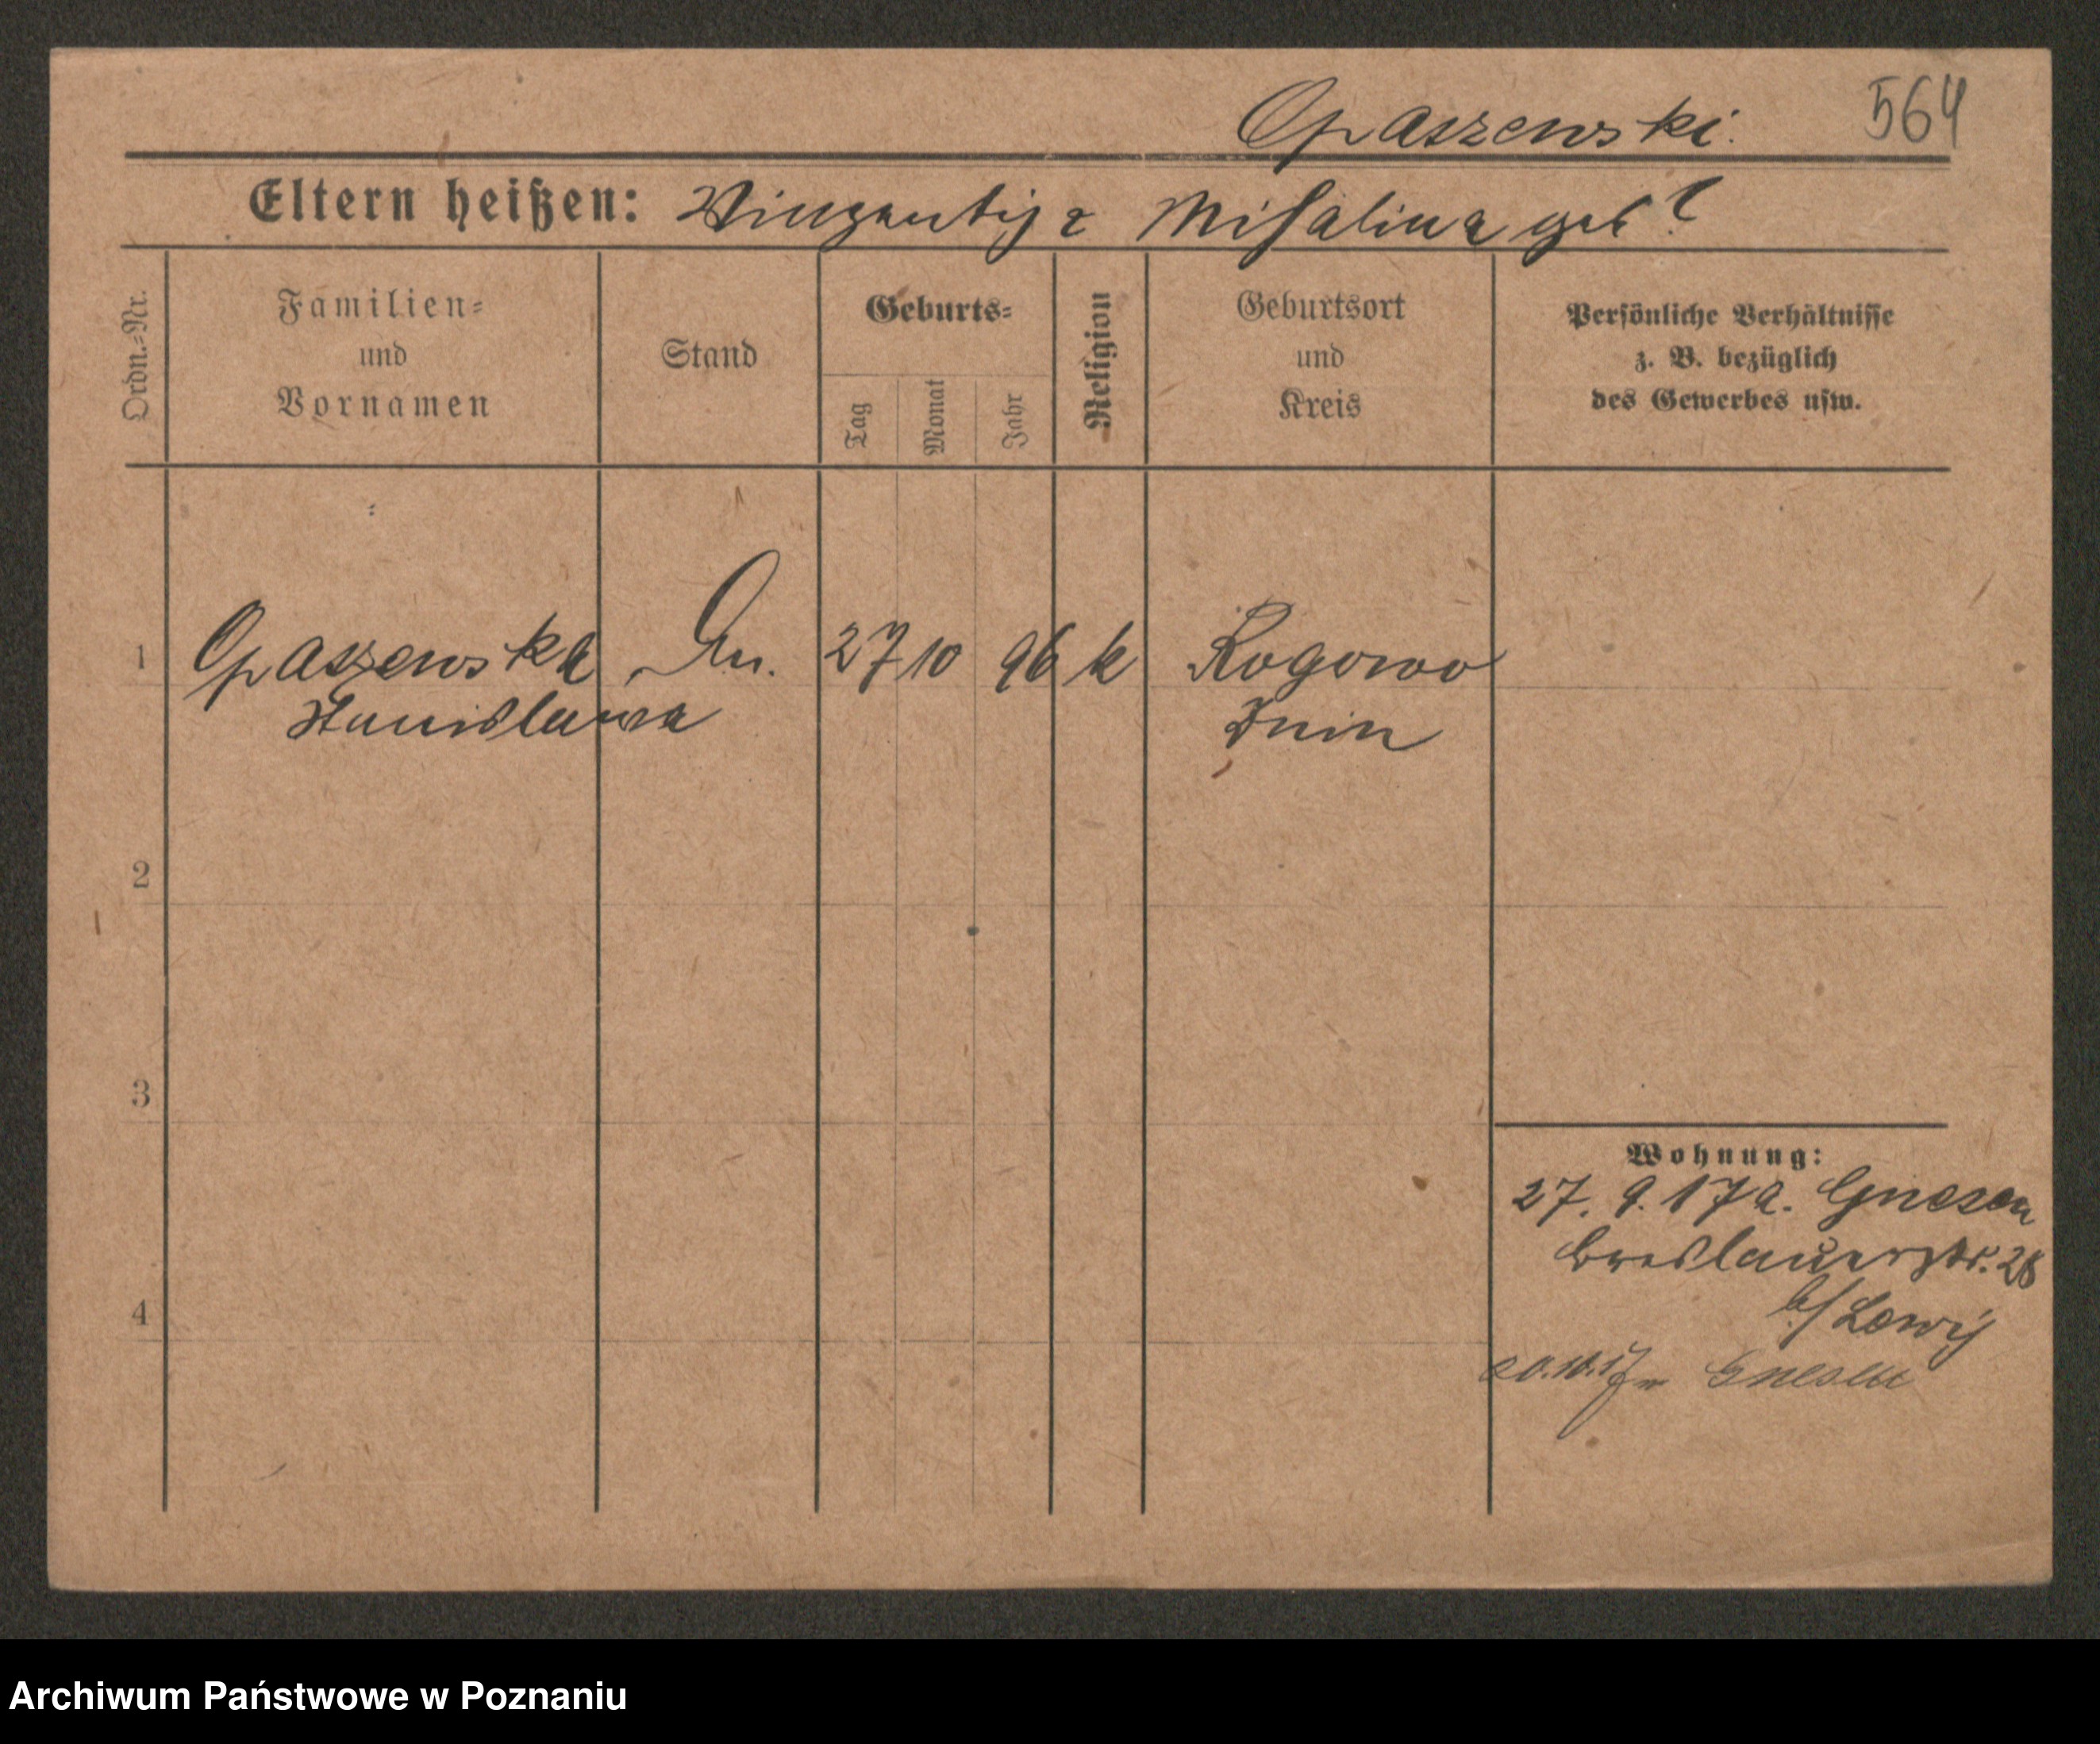 Opaszewski. 564
Eltern heißen: Vinzentij & Michalina geb?
Ordn.-Nr.
Familien- und Vornamen
Stand
Geburts-
Tag
Monat
Jahr
Religion
Geburtsort und Kreis
Persönliche Verhältnisse z. B. bezüglich des Gewerbes usw.
1 Opaszewska 27 10 96 k Rogowo
Stanislawa Znin
2
3
Wohnung:
27. 9. 17 a. Gnesen
Breslauerstr. 28
b/ Lewij
4
20.10.17 Gnesen
Archiwum Państwowe w Poznaniu